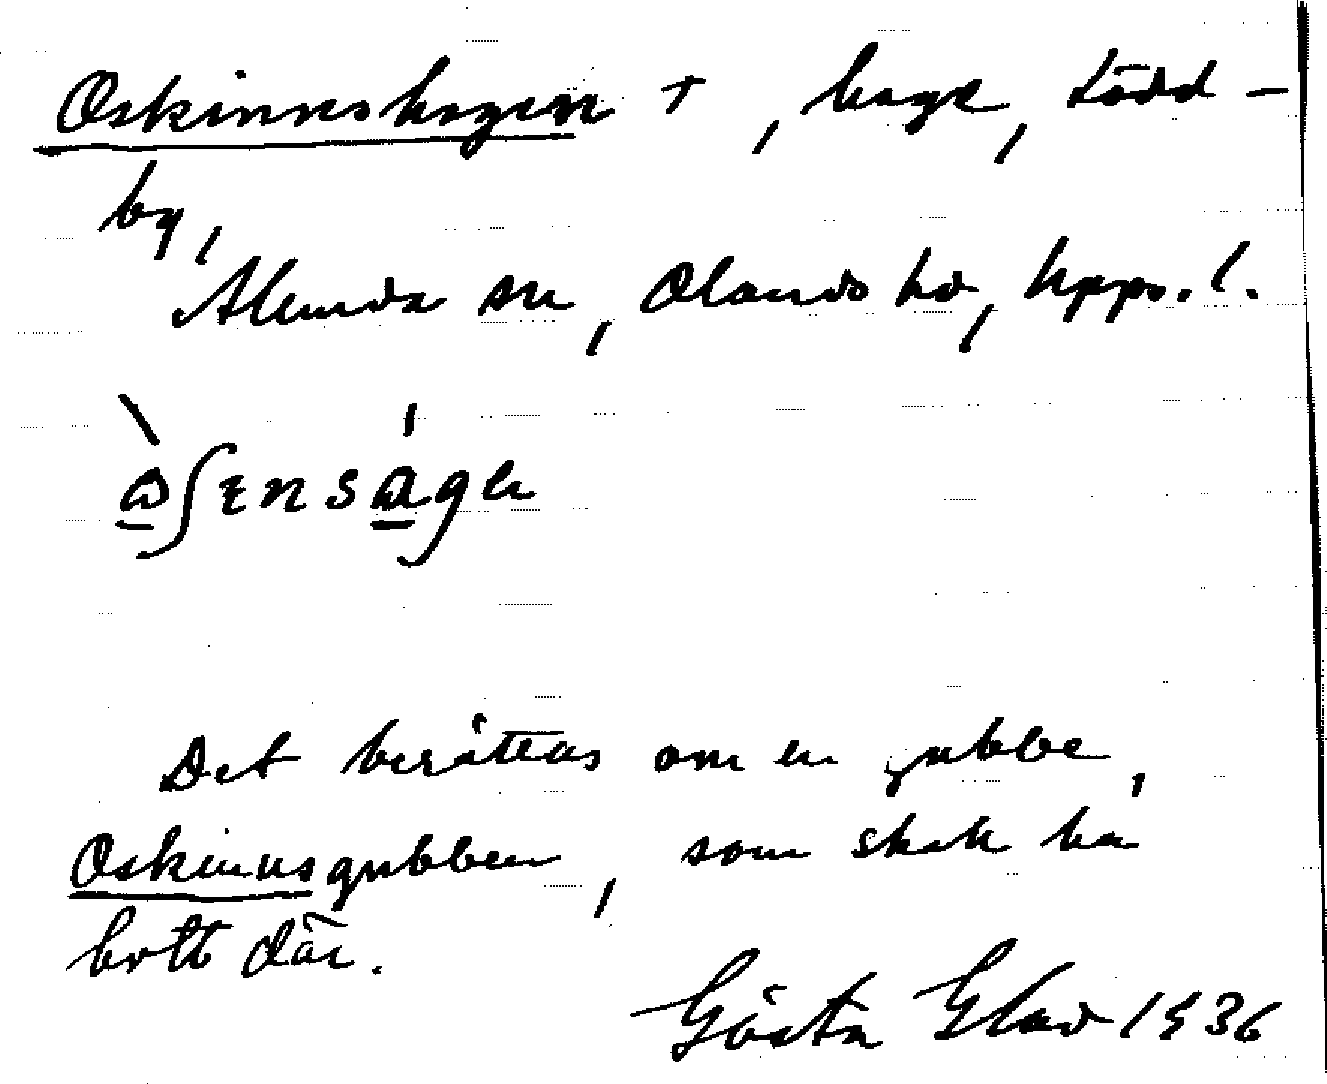 Oskinnshagen †, hage, Lödd-
by,
Alunda sn, Olands hd, Upps. l.
Det berättas om en gubbe,
Oskinnsgubben, som skall ha
bott där.
Gösta Elav 1936